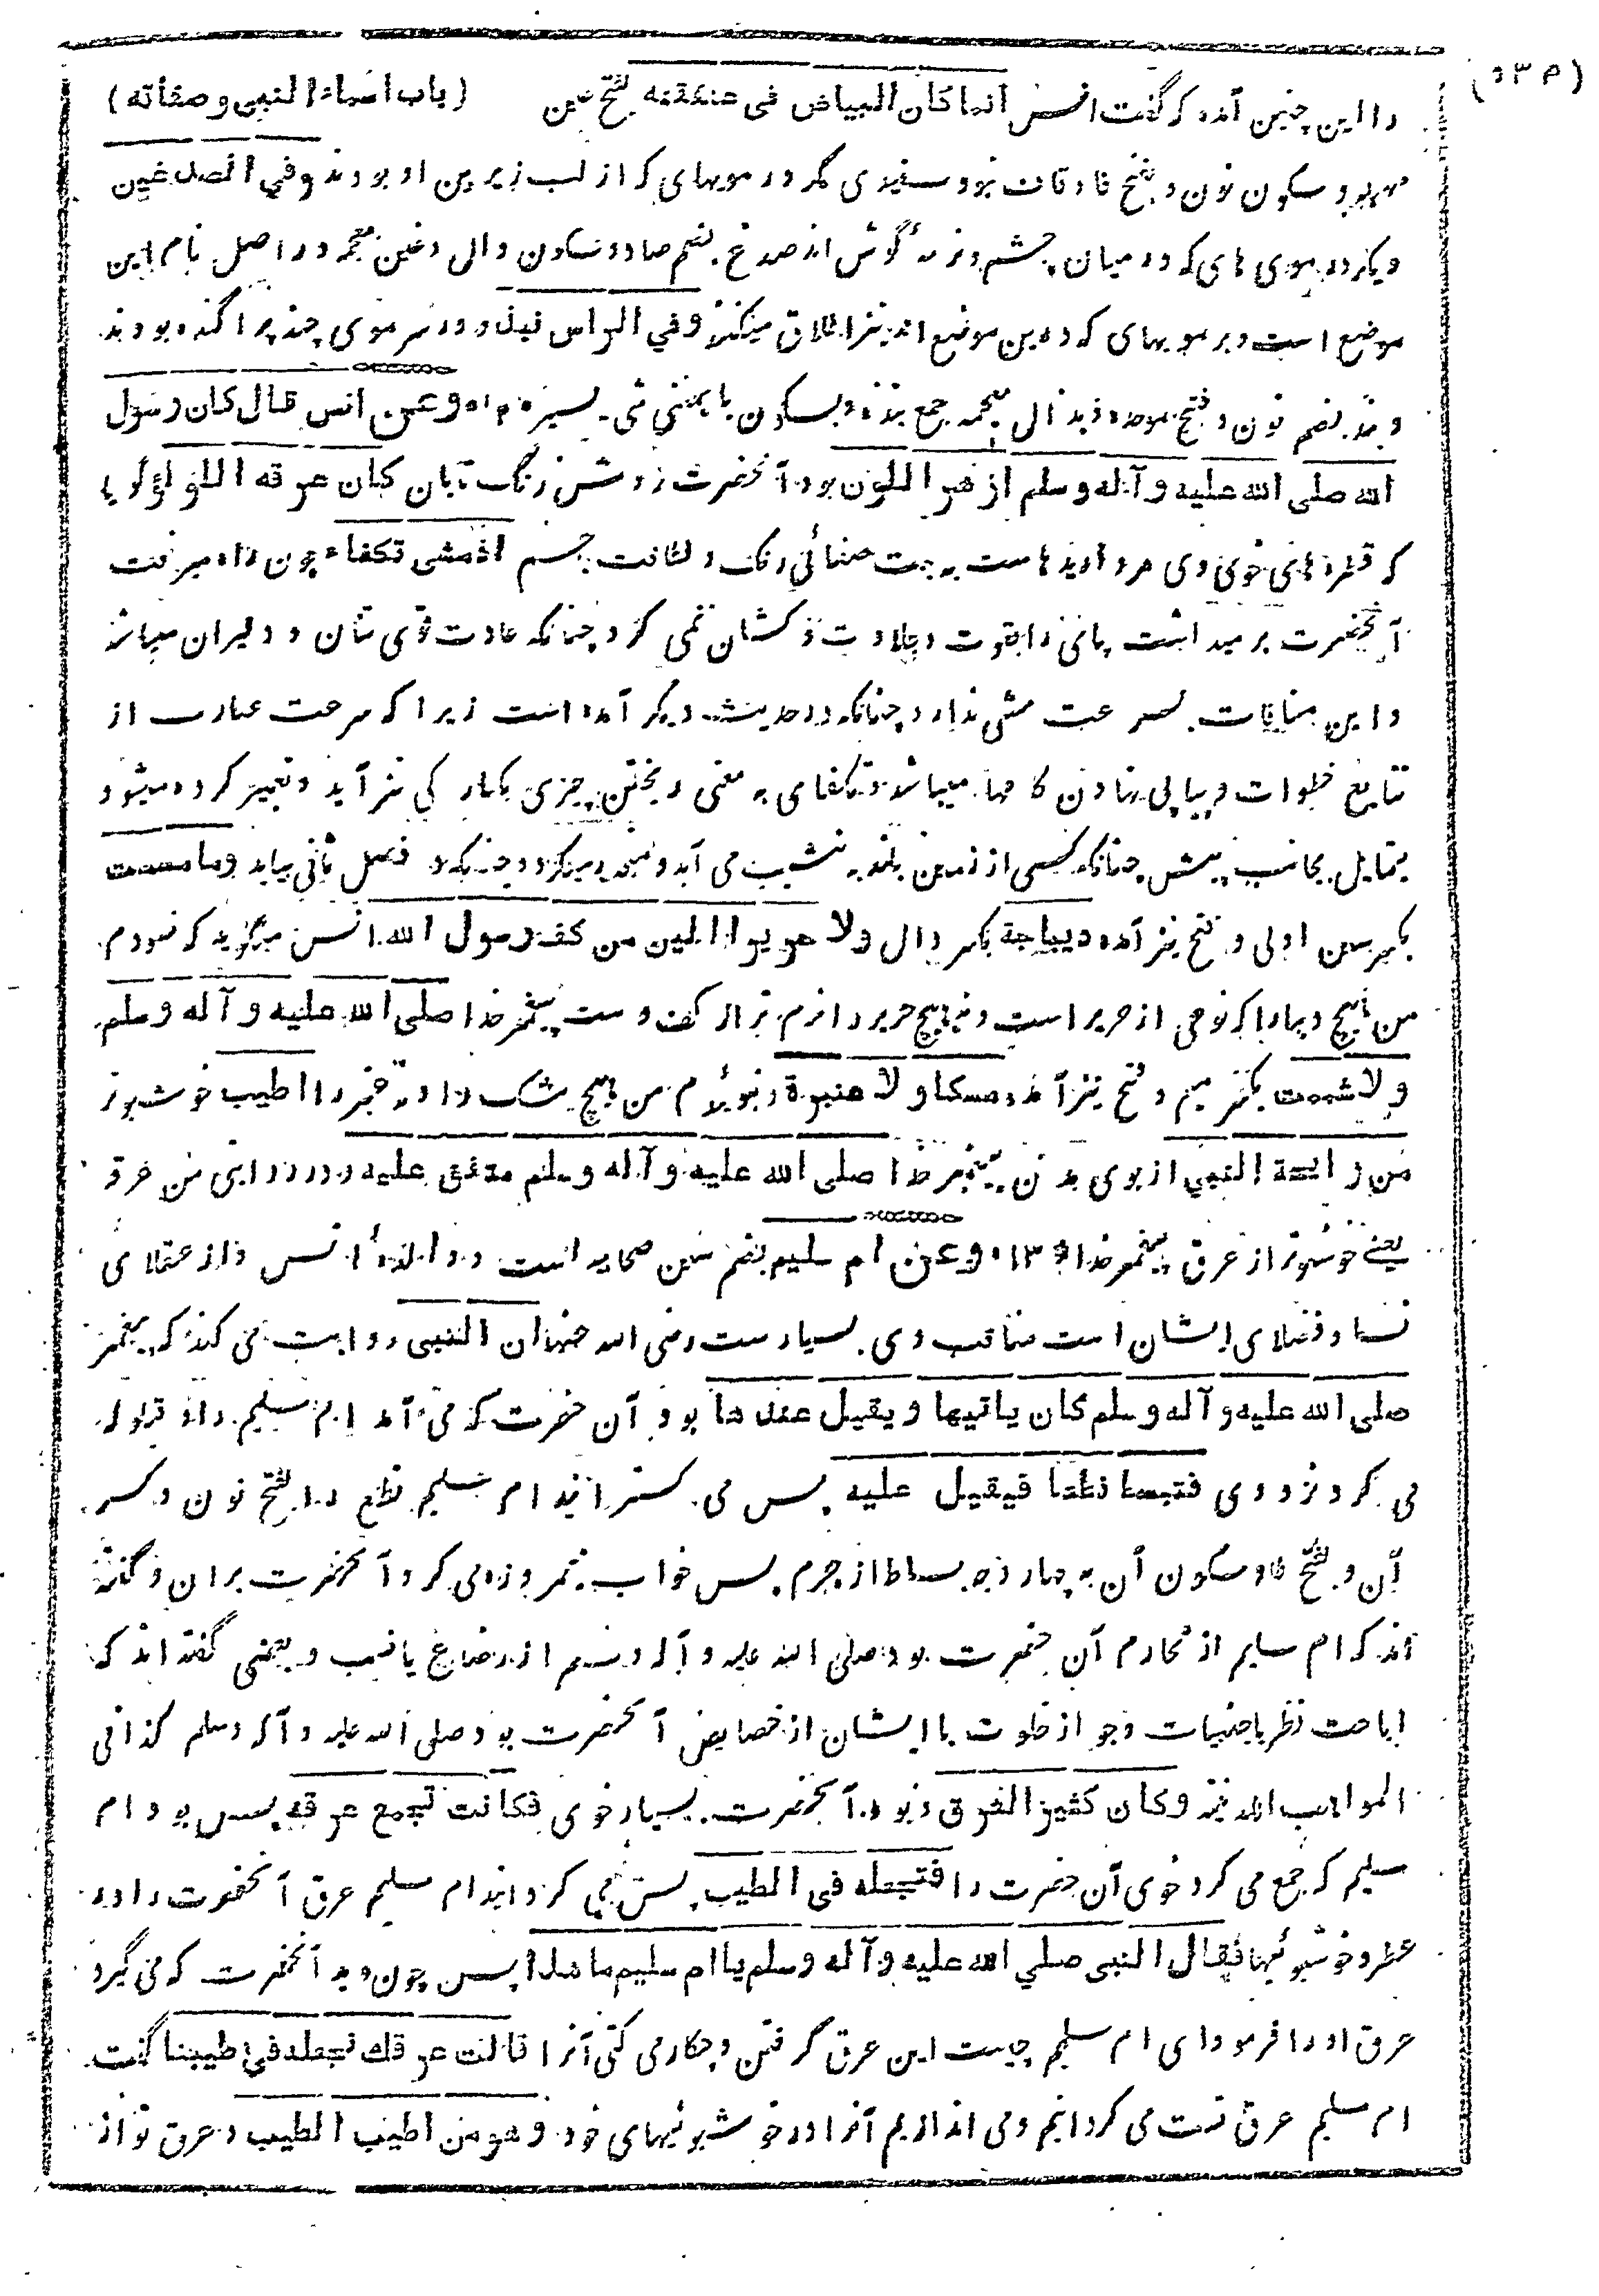 (٥٣٢)
را این چنین آمده که گفت انس انما کان البیاض فی عنفقته بفتح عین (باب اسماء النبی و صفاته)
مهمله و سکون نون و بفتح فا و قاف نبود سفیدی مگر در مویهای که از لب زیرین او بودند وفي الصدغین
و یکر در موی های که در میان چشم و نرمهٔ گوش اند صدغ بضم صاد و سکون دال و غین معجمه در اصل نام این
موضع است و بر مویهای که درین موضع اند نیز اطلاق میکنند وفي الراس نبذ و در سر موی چند پراگنده بودند
و نبذ بضم نون و فتح موحده و بذال معجمه جمع نبذه و بسکون با بمعنی شی یسیر ٥١٢ وعن انس قال کان رسول
الله صلی الله علیه وآله وسلم ازهر اللون بود آنحضرت روشن رنگ تابان کان عرقه اللؤلؤ گویا
که قطره های خوی وی مروارید هاست به جهت صفائی رنگ و لطافت جسم اذا مشی تکفاء چون راه میرفت
آنحضرت برمیداشت پای را بقوت و جلادت نه کشان نمی کرد چنانکه عادت قوی تنان و دلیران میباشد
و این منافات بسرعت مشی ندارد چنانکه در حدیث دیگر آمده است زیرا که سرعت عبارت از
تتابع خطوات و پیاپی نهادن گامها میباشد و تکفا به معنی ریختن چیزی یکبارگی نیز آید و تعبیر کرده میشود
بتمایل بجانب پیش چنانکه کسی از زمین بلند به نشیب می آید و فصل ثانی بیاید وما مسست
بکسر سین اولی و فتح نیز آمده دیباجة بکسر دال ولا حریرا الین من کف رسول الله انس میگوید که نسودم
من هیچ دیبا را که نوعی از حریر است و نه هیچ حریر را نرم تر از کف دست پیغمبر خدا صلی الله علیه وآله وسلم
ولا شممت بکسر میم و فتح نیز آمده مسکا ولا عنبرة و نبوئیدم من هیچ مشک را و نه عنبر را اطیب خوشبوتر
من رائحة النبي از بوی بدن پیغمبر خدا صلی الله علیه وآله وسلم متفق علیه و در روایتی من عرق
یعنی خوشبوتر از عرق پیغمبر خدا ٥١٣ وعن ام سلیم بضم سین صحابیه است و والدهٔ انس و از عقلای
نسا و فضلای ایشان است مناقب وی بسیار ست رضی الله عنها ان النبی روایت می کند که پیغمبر
صلی الله علیه وآله وسلم کان یاتیها ویقیل عندها بود آن حضرت که می آمد ام سلیم را و قیلوله
می کرد نزد وی فتبسط نطعا فیقیل علیه پس می گسترانید ام سلیم نطع را بفتح نون و کسر
آن و بفتح طا و سکون آن به چهار وجه بساط از چرم پس خواب نیمروز می کرد آنحضرت بران و گفته
اند که ام سلیم از محارم آن حضرت بود صلی الله علیه وآله وسلم از رضاع یا نسب و بعضی گفته اند که
اباحت نظر باجنبیات و جواز خلوت با ایشان از خصایص آنحضرت بود صلی الله علیه وآله وسلم کذا فی
المواهب اللدنیه وکان کثیر العرق و بود آنحضرت بسیار خوی فکانت تجمع عرقه پس بود ام
سلیم که جمع می کرد خوی آن حضرت را فتجعله فی الطیب پس می گردانید ام سلیم عرق آنحضرت را در
عطر و خوشبوئیها فقال النبی صلي الله علیه وآله وسلم یا ام سلیم ما هذا پس چون دید آنحضرت که می گیرد
عرق او را فرمود ای ام سلیم چیست این عرق گرفتن و چکار می کنی آنرا قالت عرقك نجعله في طیبنا گفت
ام سلیم عرق تست می گردانیم و می اندازیم آنرا در خوشبوئیهای خود وهو من اطیب الطیب و عرق تو از